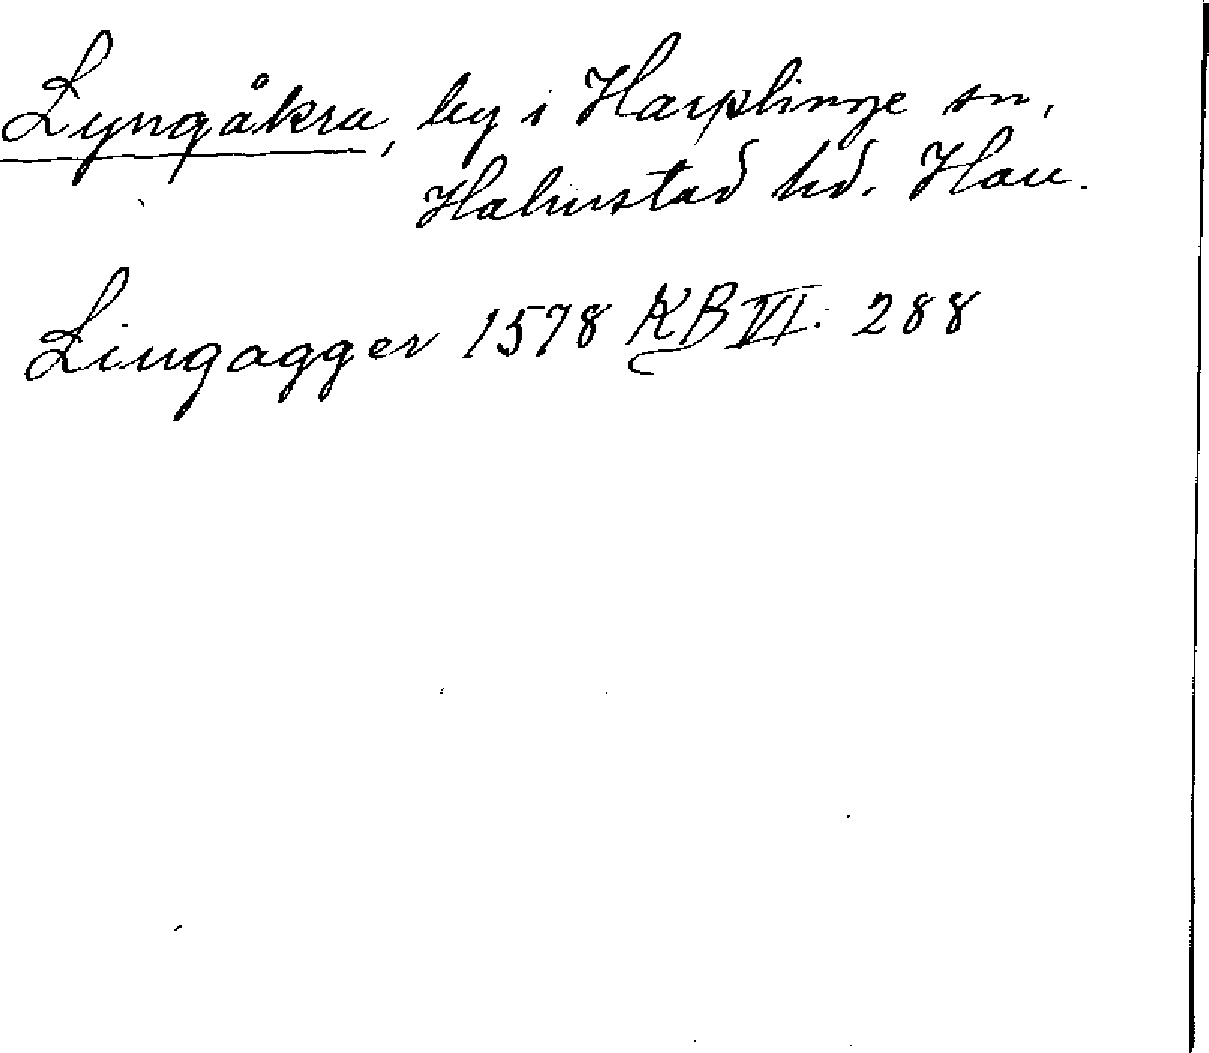 Lyngåkra, by i Harplinge sn,
Halmstad hd. Hall.
Lingagger 1578 KB VI: 288